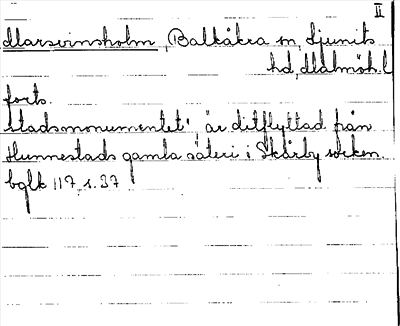 II
Marsvinsholm, Balkåkra sn, Ljunits
hd, Malmöh. l
forts.
stadsmonumentet", är ditflyttad från
Hunnestads gamla säteri i Skårby socken.
bglk 117, s. 37